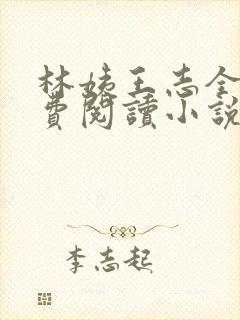 林姨王志全
費閱讀小說
李志起